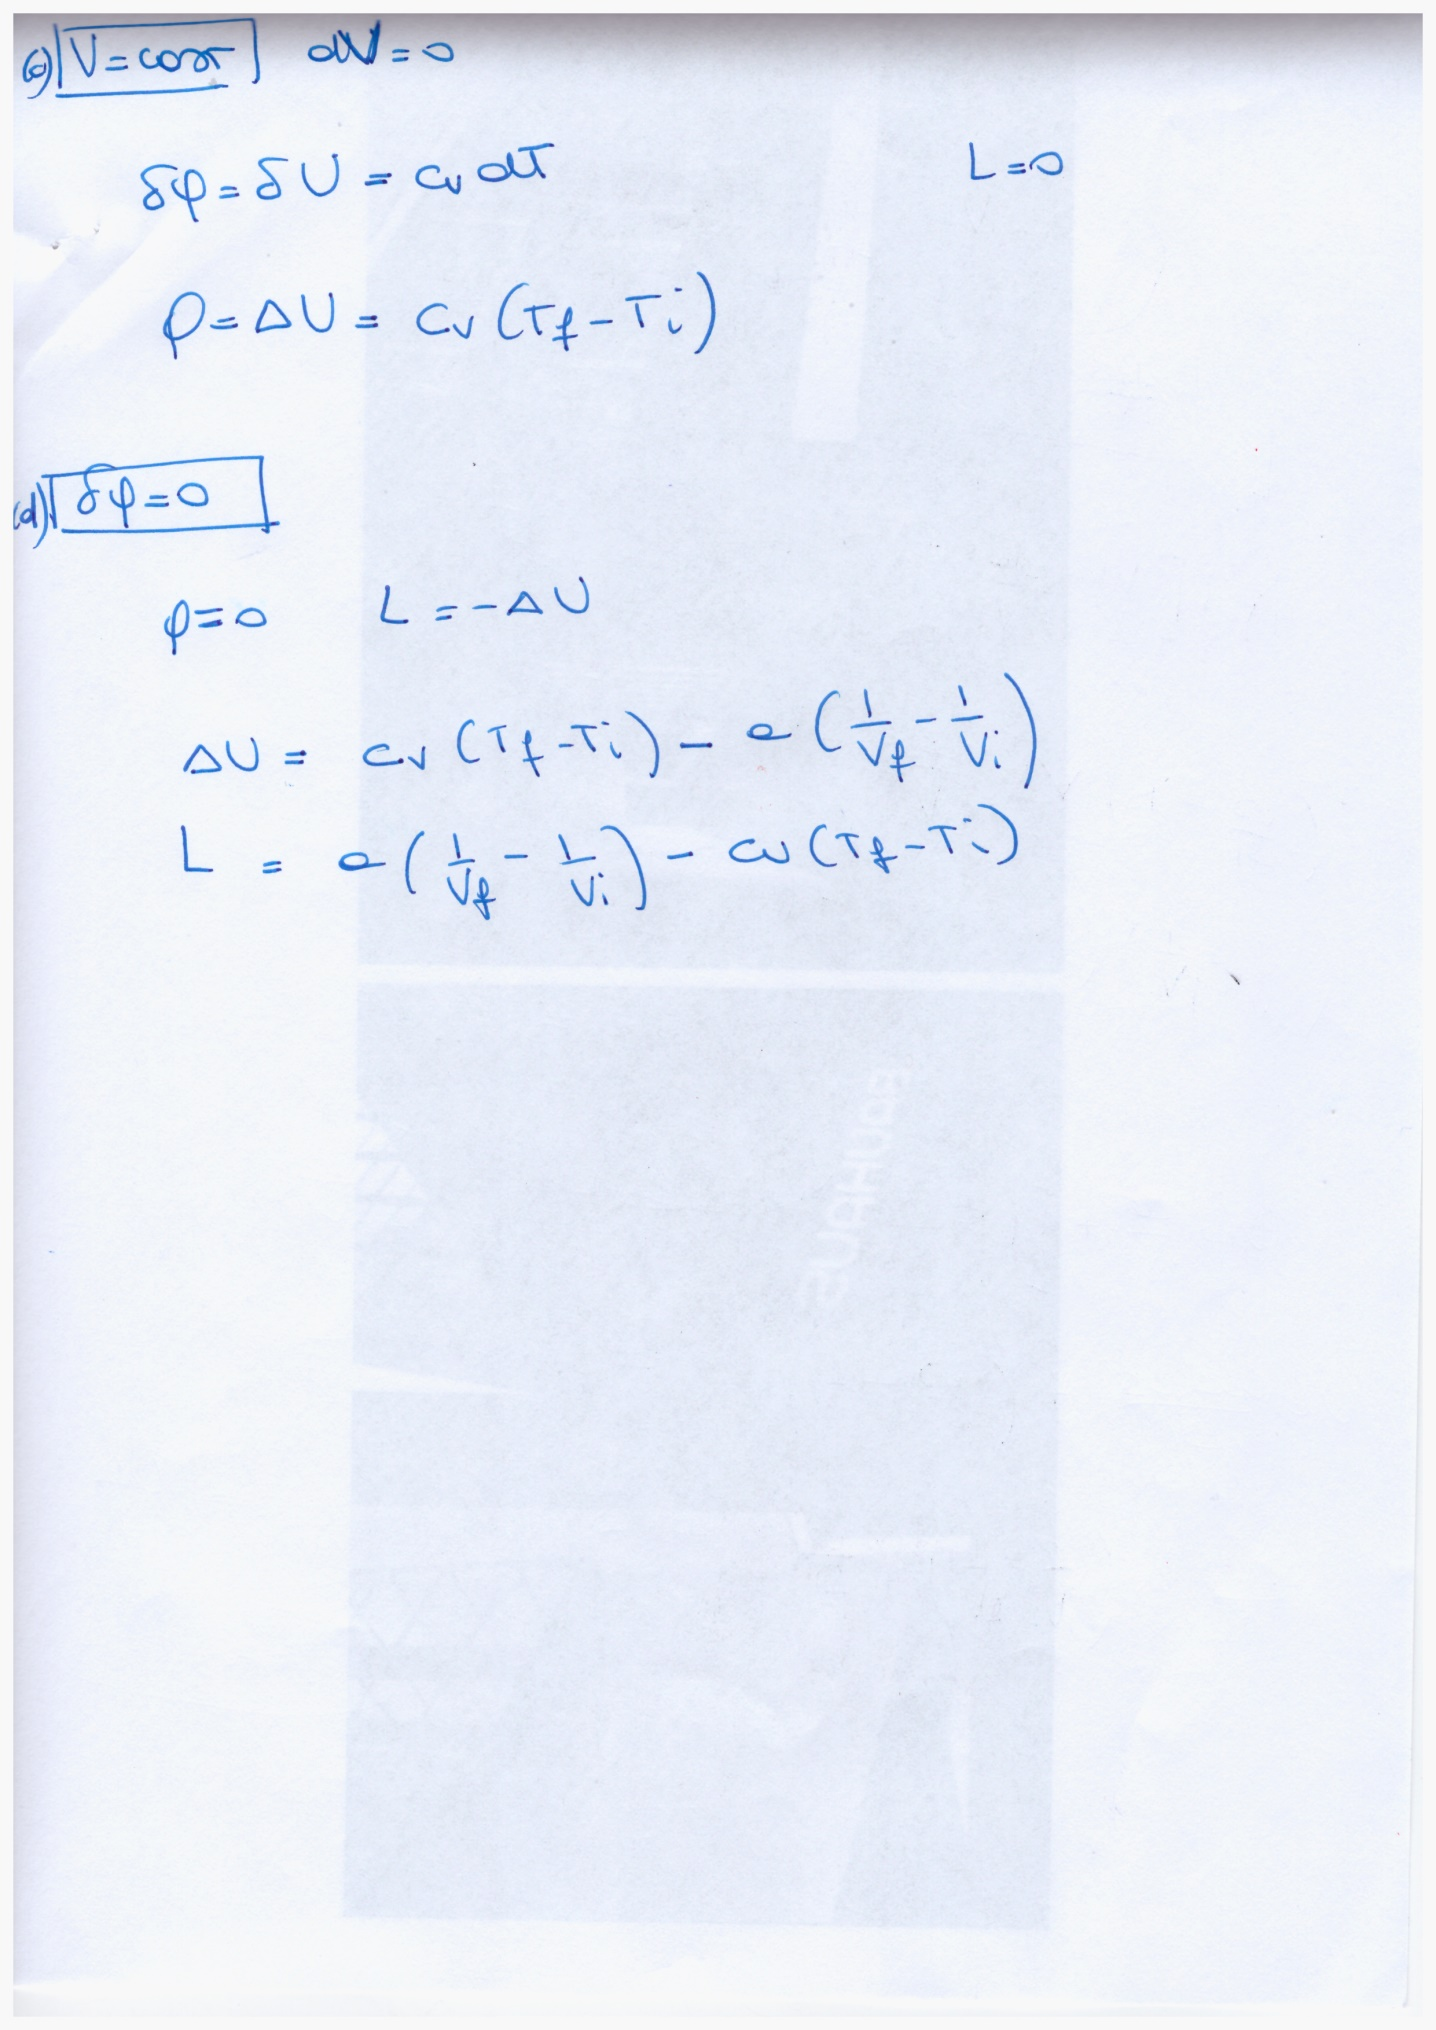 (c) V = cost dV = 0
δφ = δU = cv dT L = 0
φ = ΔU = cv (Tf - Ti)
(d) δφ = 0
φ = 0 L = - ΔU
ΔU = cv (Tf - Ti) - a (1/Vf - 1/Vi)
L = a (1/Vf - 1/Vi) - cv (Tf - Ti)
BAUHAUS